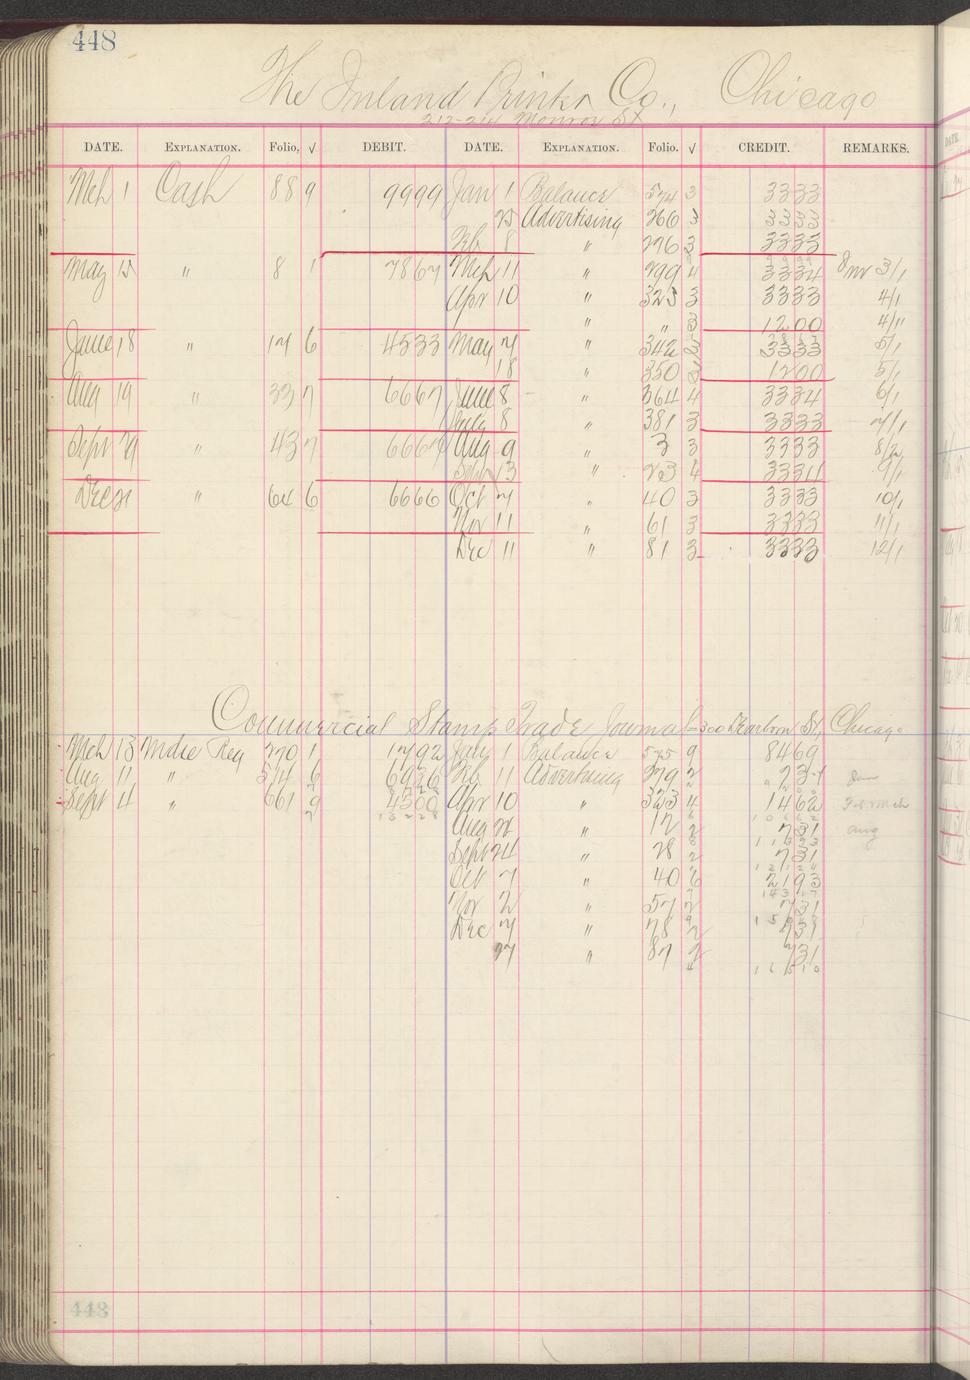 448
The Inland Printer Co., Chicago
212-214 Monroe St
DATE. EXPLANATION. Folio, √ DEBIT. DATE. EXPLANATION. Folio. √ CREDIT. REMARKS.
Mch 1 Cash 88 9 9999 Jan 1 Balance 574 3 3333
25 Advertising 260 3 3333
Feb 8 " 276 3 3333
May 15 " 8 1 7867 Mch 11 " 299 4 3334 3/1
Apr 10 " 323 3 3333 4/1
" " 3 1200 4/11
June 18 " 17 6 4533 May 7 " 342 3 3333 5/1
18 " 350 3 1200 5/1
Aug 19 " 33 7 6667 June 8 " 364 4 3334 6/1
July 8 " 381 3 3333 7/1
Sept 29 " 43 7 6667 Aug 9 " 3 3 3333 8/2
Sept 13 " 23 4 3334 9/1
Dec 21 " 64 6 6666 Oct 7 " 40 3 3333 10/1
Nov 11 " 61 3 3333 11/1
Dec 11 " 81 3 3333 12/1
Commercial Stamp Trade Journal 300 Dearborn St, Chicago
Mch 13 Mdse Reg 270 1 1792 Jany 1 Balance 575 9 8469
Aug 11 " 514 6 6936 Feb 11 Advertising 279 2 731 Jan
8728
Sept 4 " 661 9 4500 Apr 10 " 323 4 1462 Feb Mch
13228 10662
Aug 26 " 12 2 731 Aug
11393
Sept 24 " 28 2 731
12124
Oct 7 " 40 6 2193
14317
Nov 2 " 57 2 731
Dec 7 " 78 2 731
27 " 87 2 731
16510
448